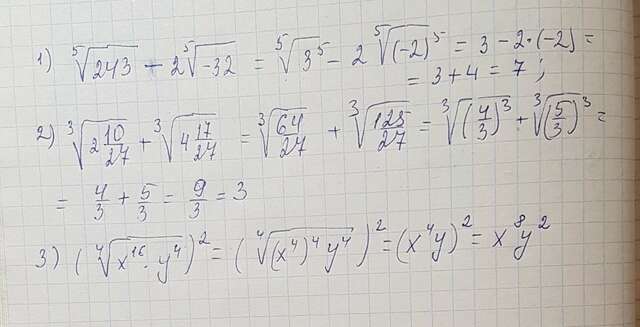 1) ⁵√243 - 2 ⁵√-32 = ⁵√3⁵ - 2 ⁵√(-2)⁵ = 3 - 2·(-2) =
= 3 + 4 = 7 ;
2) ³√2 10/27 + ³√4 17/27 = ³√64/27 + ³√125/27 = ³√(4/3)³ + ³√(5/3)³ =
= 4/3 + 5/3 = 9/3 = 3
3) (⁴√x¹⁶·y⁴)² = (⁴√(x⁴)⁴y⁴)² = (x⁴y)² = x⁸y²